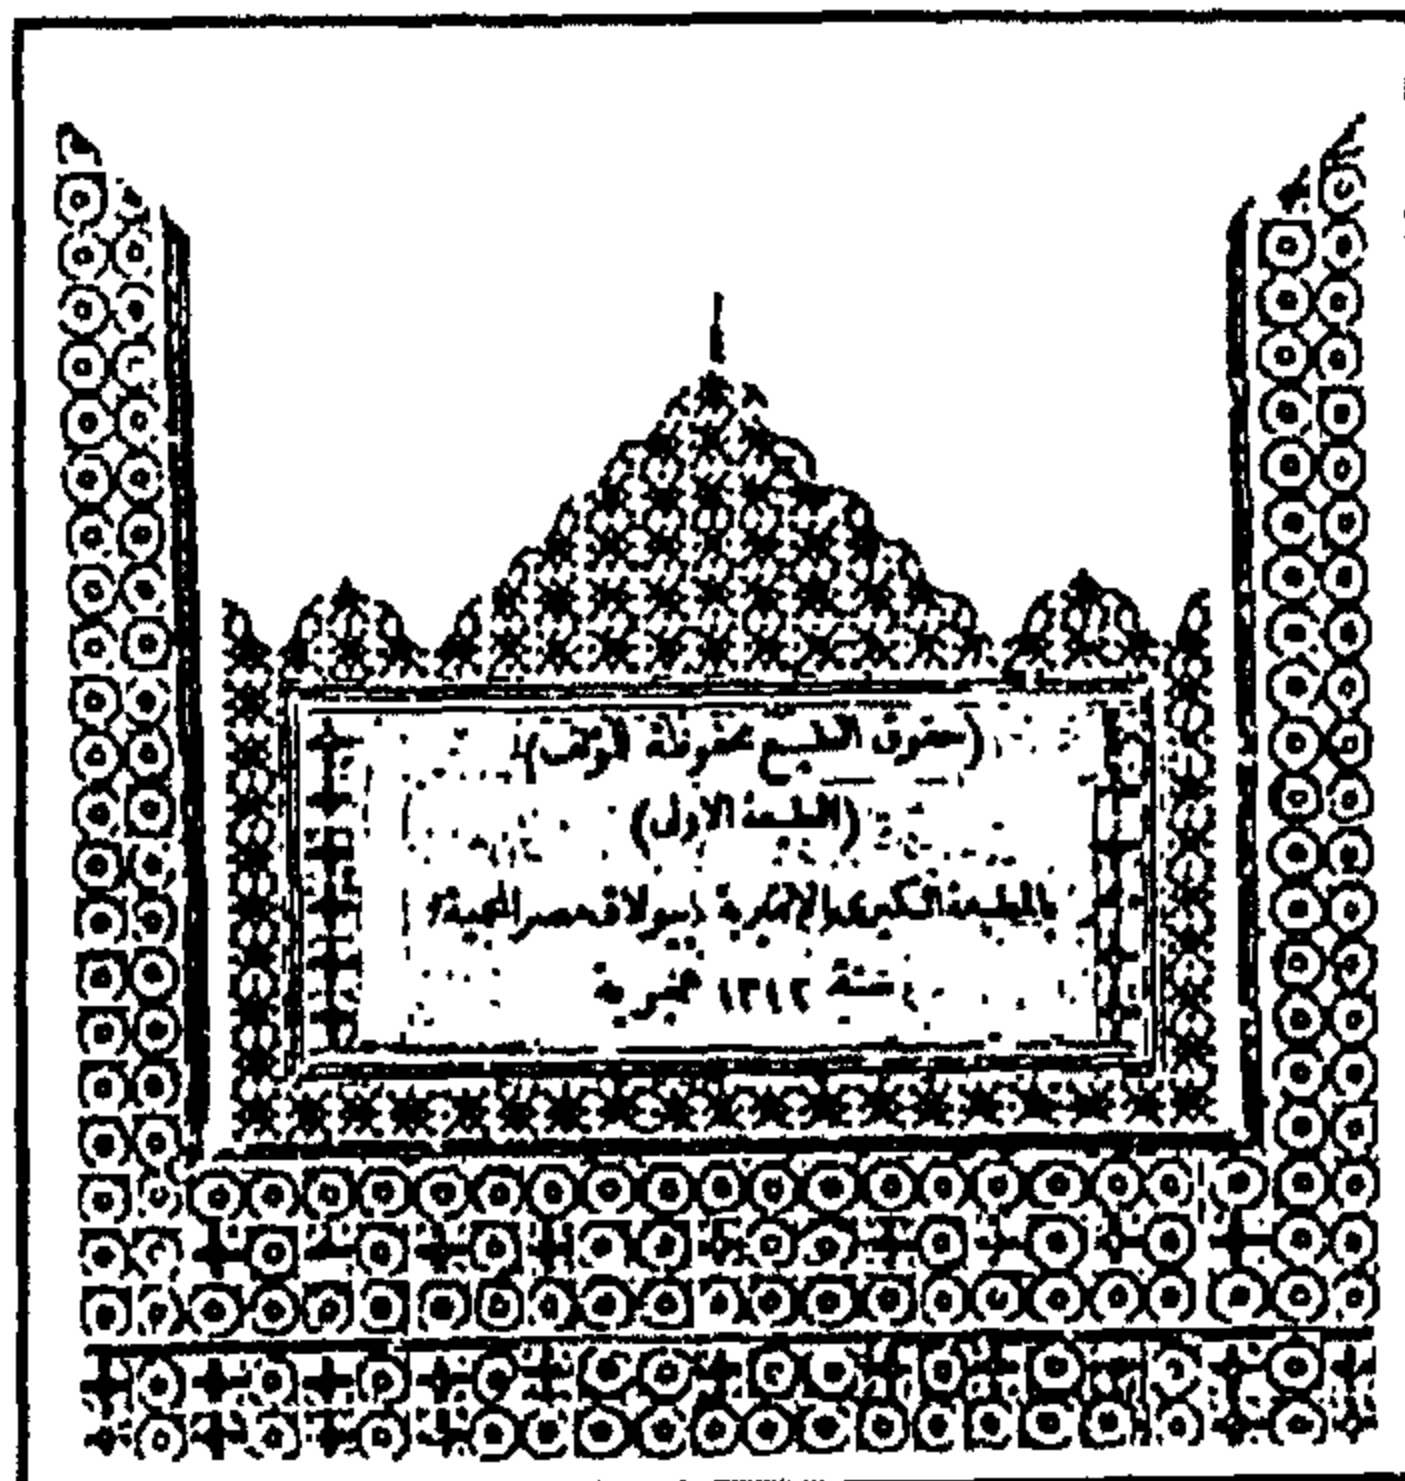 (حقوق الطبع محفوظة لمؤلفه)
(الطبعة الاولى)
بالمطبعة الكبرى الاميرية ببولاق مصر المحمية
سنة ١٣١٢ هجرية